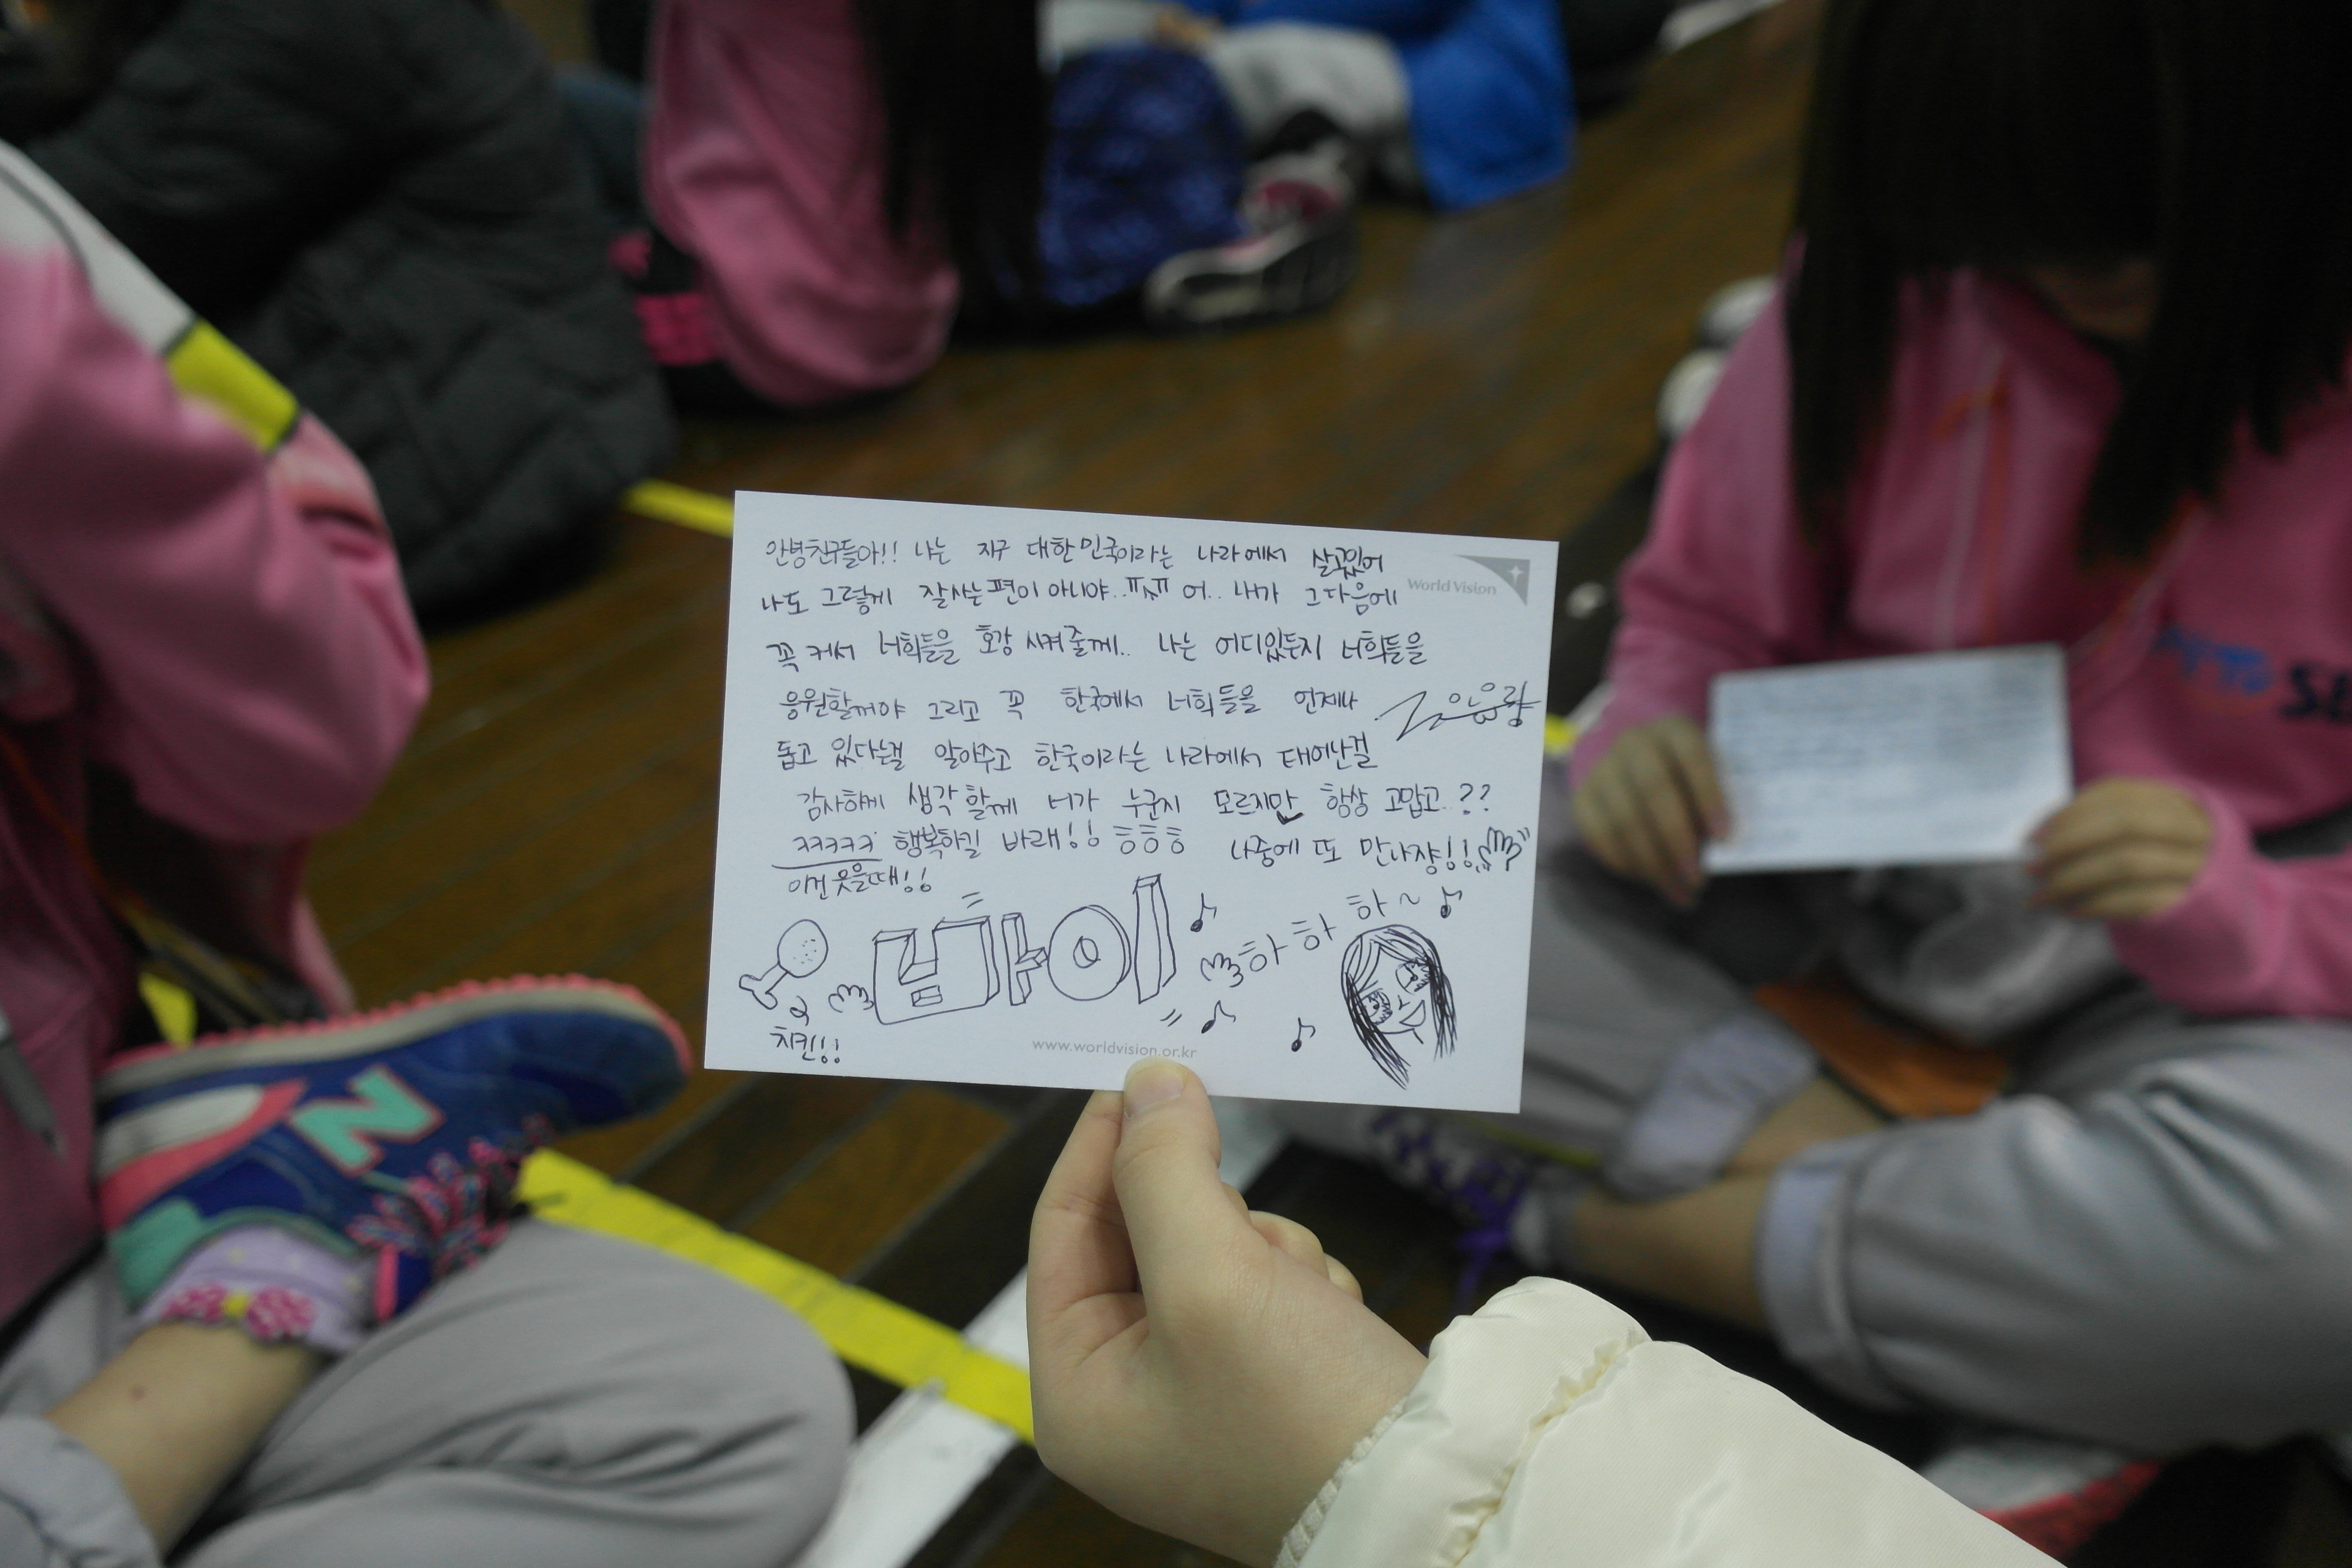 안녕친구들아!! 나는 지구 대한민국이라는 나라에서 살고있어
World Vision
나도 그렇게 잘사는편이 아니야..ㅠㅠ 어.. 내가 그다음에
꼭 커서 너희들을 호강 시켜줄께.. 나는 어디있든지 너희들을
응원할꺼야 그리고 꼭 한국에서 너희들을 언제나
돕고 있다는걸 알아주고 한국이라는 나라에서 태어난걸
감사하게 생각할께 너가 누군지 모르지만 항상 고맙고..??
ㅋㅋㅋㅋㅋ 행복하길 바래!! ㅎㅎㅎ 나중에 또 만나쟝!!
이건 웃을때!!
바이
하하하~
치킨!!
www.worldvision.or.kr
N